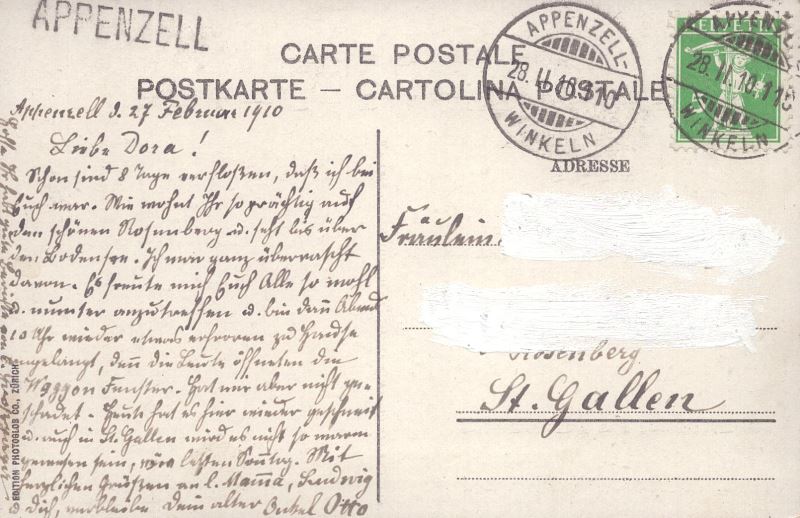 APPENZELL
CARTE POSTALE
POSTKARTE – CARTOLINA POSTALE
APPENZELL-
28.II.10.-110
WINKELN
HELVETIA
APPENZELL-
28.II.10.-110
WINKELN
ADRESSE
Appenzell d. 27 Februar 1910
Liebe Dora!
Schon sind 8 Tage verfloßen, daß ich bei
Euch war. Wie wohnt Ihr so prächtig auf
dem schönen Rosenberg u. seht bis über
den Bodensee. Ich war ganz überrascht
davon. Es freute mich Euch Alle so wohl
u. munter anzutreffen u. bin dañ Abend
10 Uhr wieder etwas erfroren zu Hause
angelangt, deñ die Leute öffneten die
Waggon Fenster. Hat mir aber nicht ge-
schadet. Heute hat es hier wieder geschneit
u. auch in St. Gallen wird es nicht so warm
gewesen sein, wie letzten Sonntag. Mit
herzlichen Grüßen an l. Mamma, Ludwig
u. Dich, verbleibe Dein alter Onkel Otto
Fräulein
Rosenberg
St. Gallen
EDITION PHOTOGLOB CO., ZÜRICH